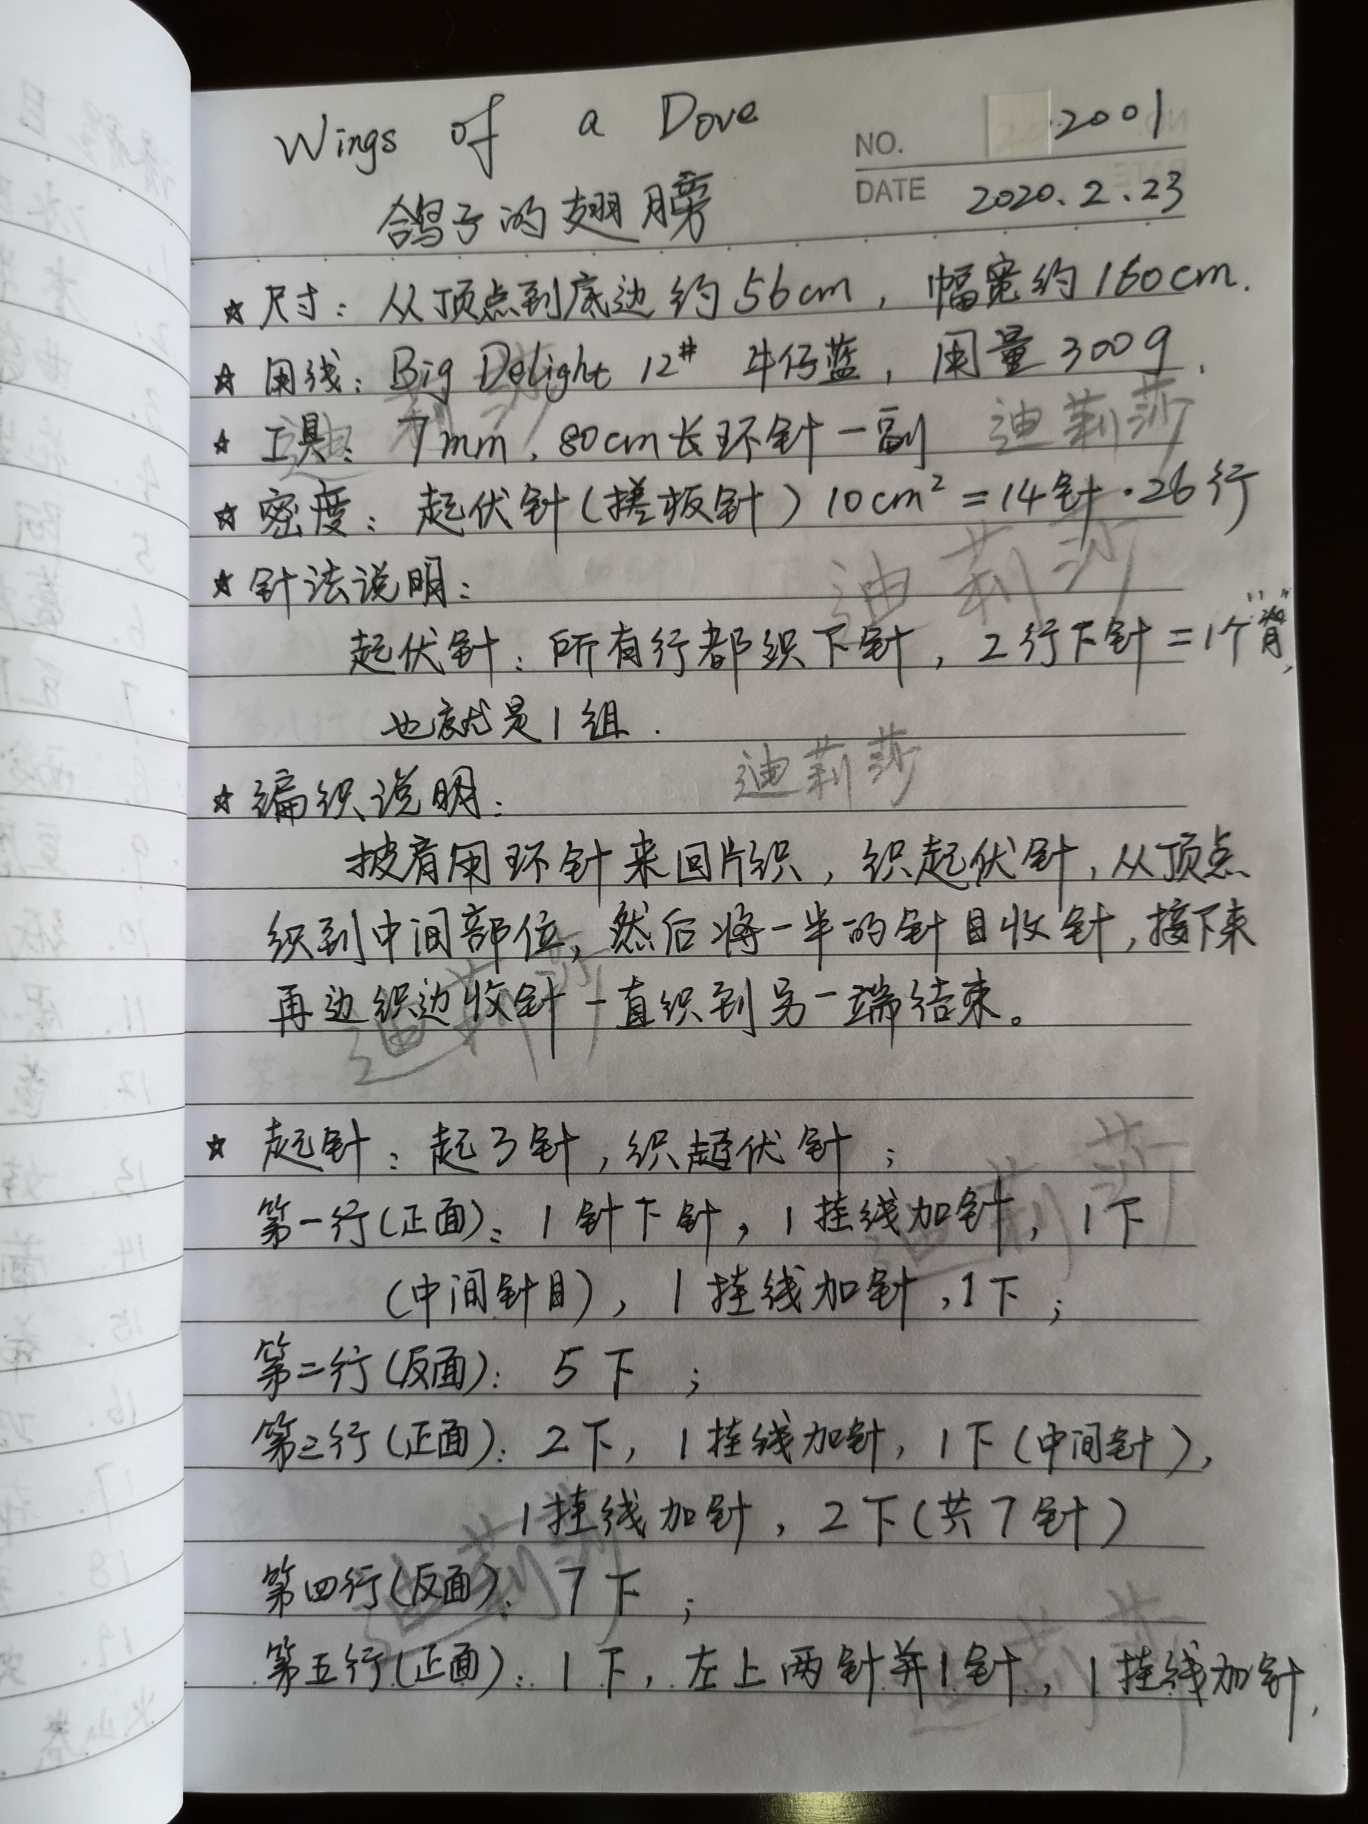 Wings of a Dove
NO. 2001
鸽子的翅膀
DATE 2020.2.23
☆尺寸：从顶点到底边约56cm，幅宽约160cm.
☆用线：Big Delight 12# 牛仔蓝，用量300g.
☆工具：7mm，80cm长环针一副
迪莉莎
☆密度：起伏针(搓板针) 10cm²=14针·26行
迪莉莎
☆针法说明：
起伏针：所有行都织下针，2行下针=1个"背"，
也就是1组.
☆编织说明：
迪莉莎
披肩用环针来回片织，织起伏针，从顶点
织到中间部位，然后将一半的针目收针，接下来
再边织边收针一直织到另一端结束。
迪莉莎
☆起针：起3针，织起伏针；
第一行(正面)：1针下针，1挂线加针，1下
迪莉莎
(中间针目)，1挂线加针，1下；
第二行(反面)：5下；
第三行(正面)：2下，1挂线加针，1下(中间针)，
1挂线加针，2下(共7针)
第四行(反面)：7下；
迪莉莎
第五行(正面)：1下，左上两针并1针，1挂线加针，
迪莉莎